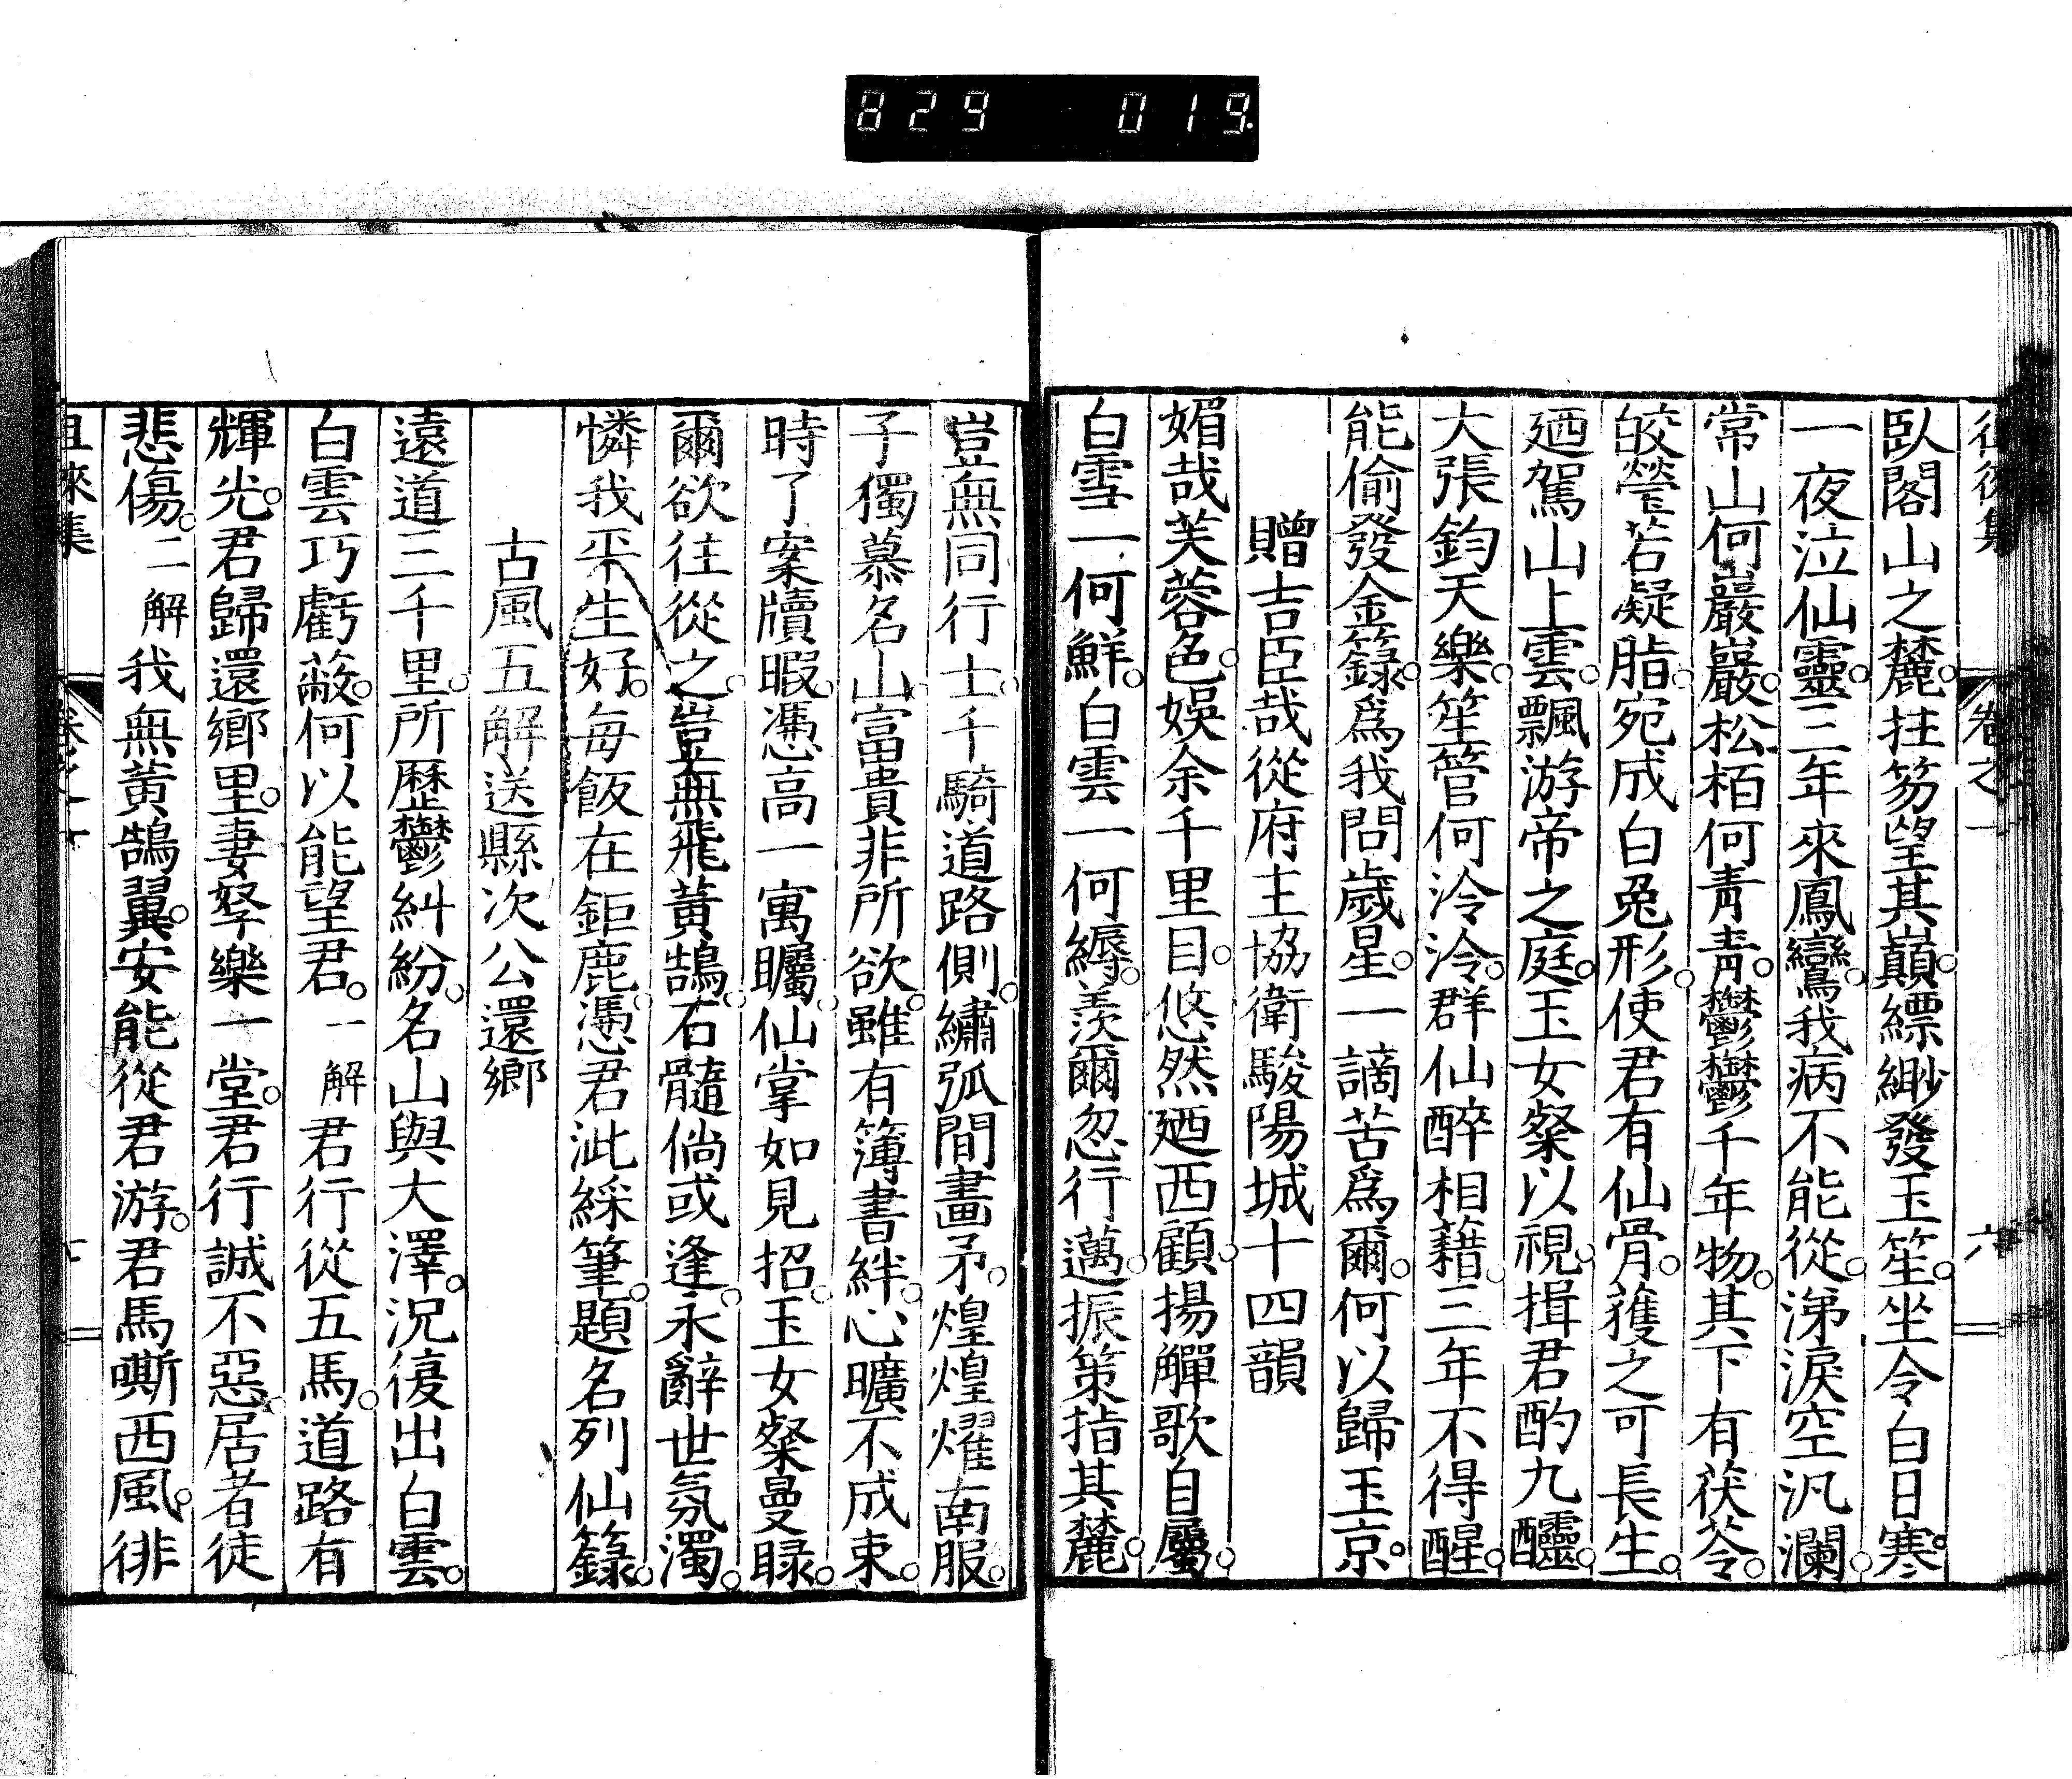 829 019.
徂徠集 卷之一 六
臥閣山之麓。拄笏望其巔。縹緲發玉笙。坐令白日寒。
一夜泣仙靈。三年來鳳鸞。我病不能從。涕淚空汎瀾。
常山何巖巖。松栢何靑靑。鬱鬱千年物。其下有茯苓。
皎瑩若凝脂。宛成白兔形。使君有仙骨。獲之可長生。
廼駕山上雲。飄游帝之庭。玉女粲以視。揖君酌九醽。
大張鈞天樂。笙管何泠泠。群仙醉相藉。三年不得醒。
能偷發金籙。爲我問歲星。一謫苦爲爾。何以歸玉京。
贈吉臣哉從府主協衛駿陽城十四韻
媚哉芙蓉色。娛余千里目。悠然廼西顧。揚觶歌自屬。
白雪一何鮮。白雲一何縟。羨爾忽行邁。振策指其麓。
豈無同行士。千騎道路側。繡弧間畫矛。煌煌燿南服。
子獨慕名山。富貴非所欲。雖有簿書絆。心曠不成束。
時了案牘暇。憑高一寓矚。仙掌如見招。玉女粲曼睩。
爾欲往從之。豈無飛黃鵠。石髓倘或逢。永辭世氛濁。
憐我平生好。每飯在鉅鹿。憑君泚綵筆。題名列仙籙。
古風五解送縣次公還鄉
遠道三千里。所歷鬱糾紛。名山與大澤。況復出白雲。
白雲巧虧蔽。何以能望君。一解君行從五馬。道路有
輝光。君歸還鄉里。妻孥樂一堂。君行誠不惡。居者徒
悲傷。二解我無黃鵠翼。安能從君游。君馬嘶西風。徘
徂徠集 卷之一